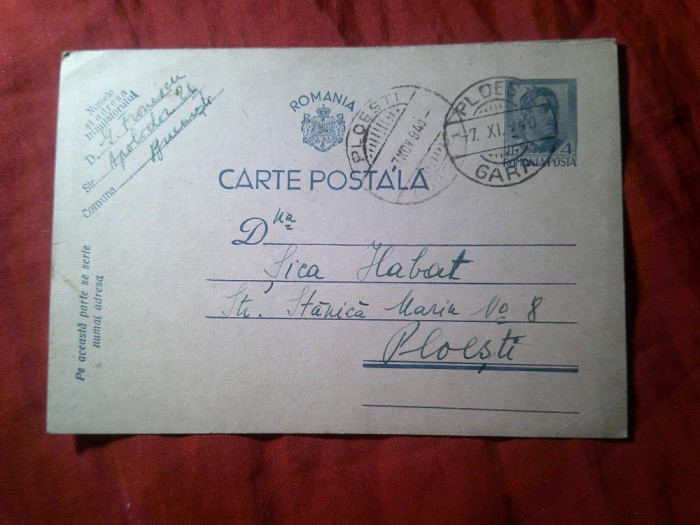 Numele
și adresa
trimițătorului
D.
Str. Apolodor 26
Comuna București
ROMANIA
CARTE POSTALĂ
PLOEȘTI
7 NOV 940
PLOEȘTI
-7. XI. 940
GARA
4
ROMANIA POSTA
Dna
Șica Habat
Str. Stănică Marin No 8
Ploești
Pe această parte se scrie
numai adresa